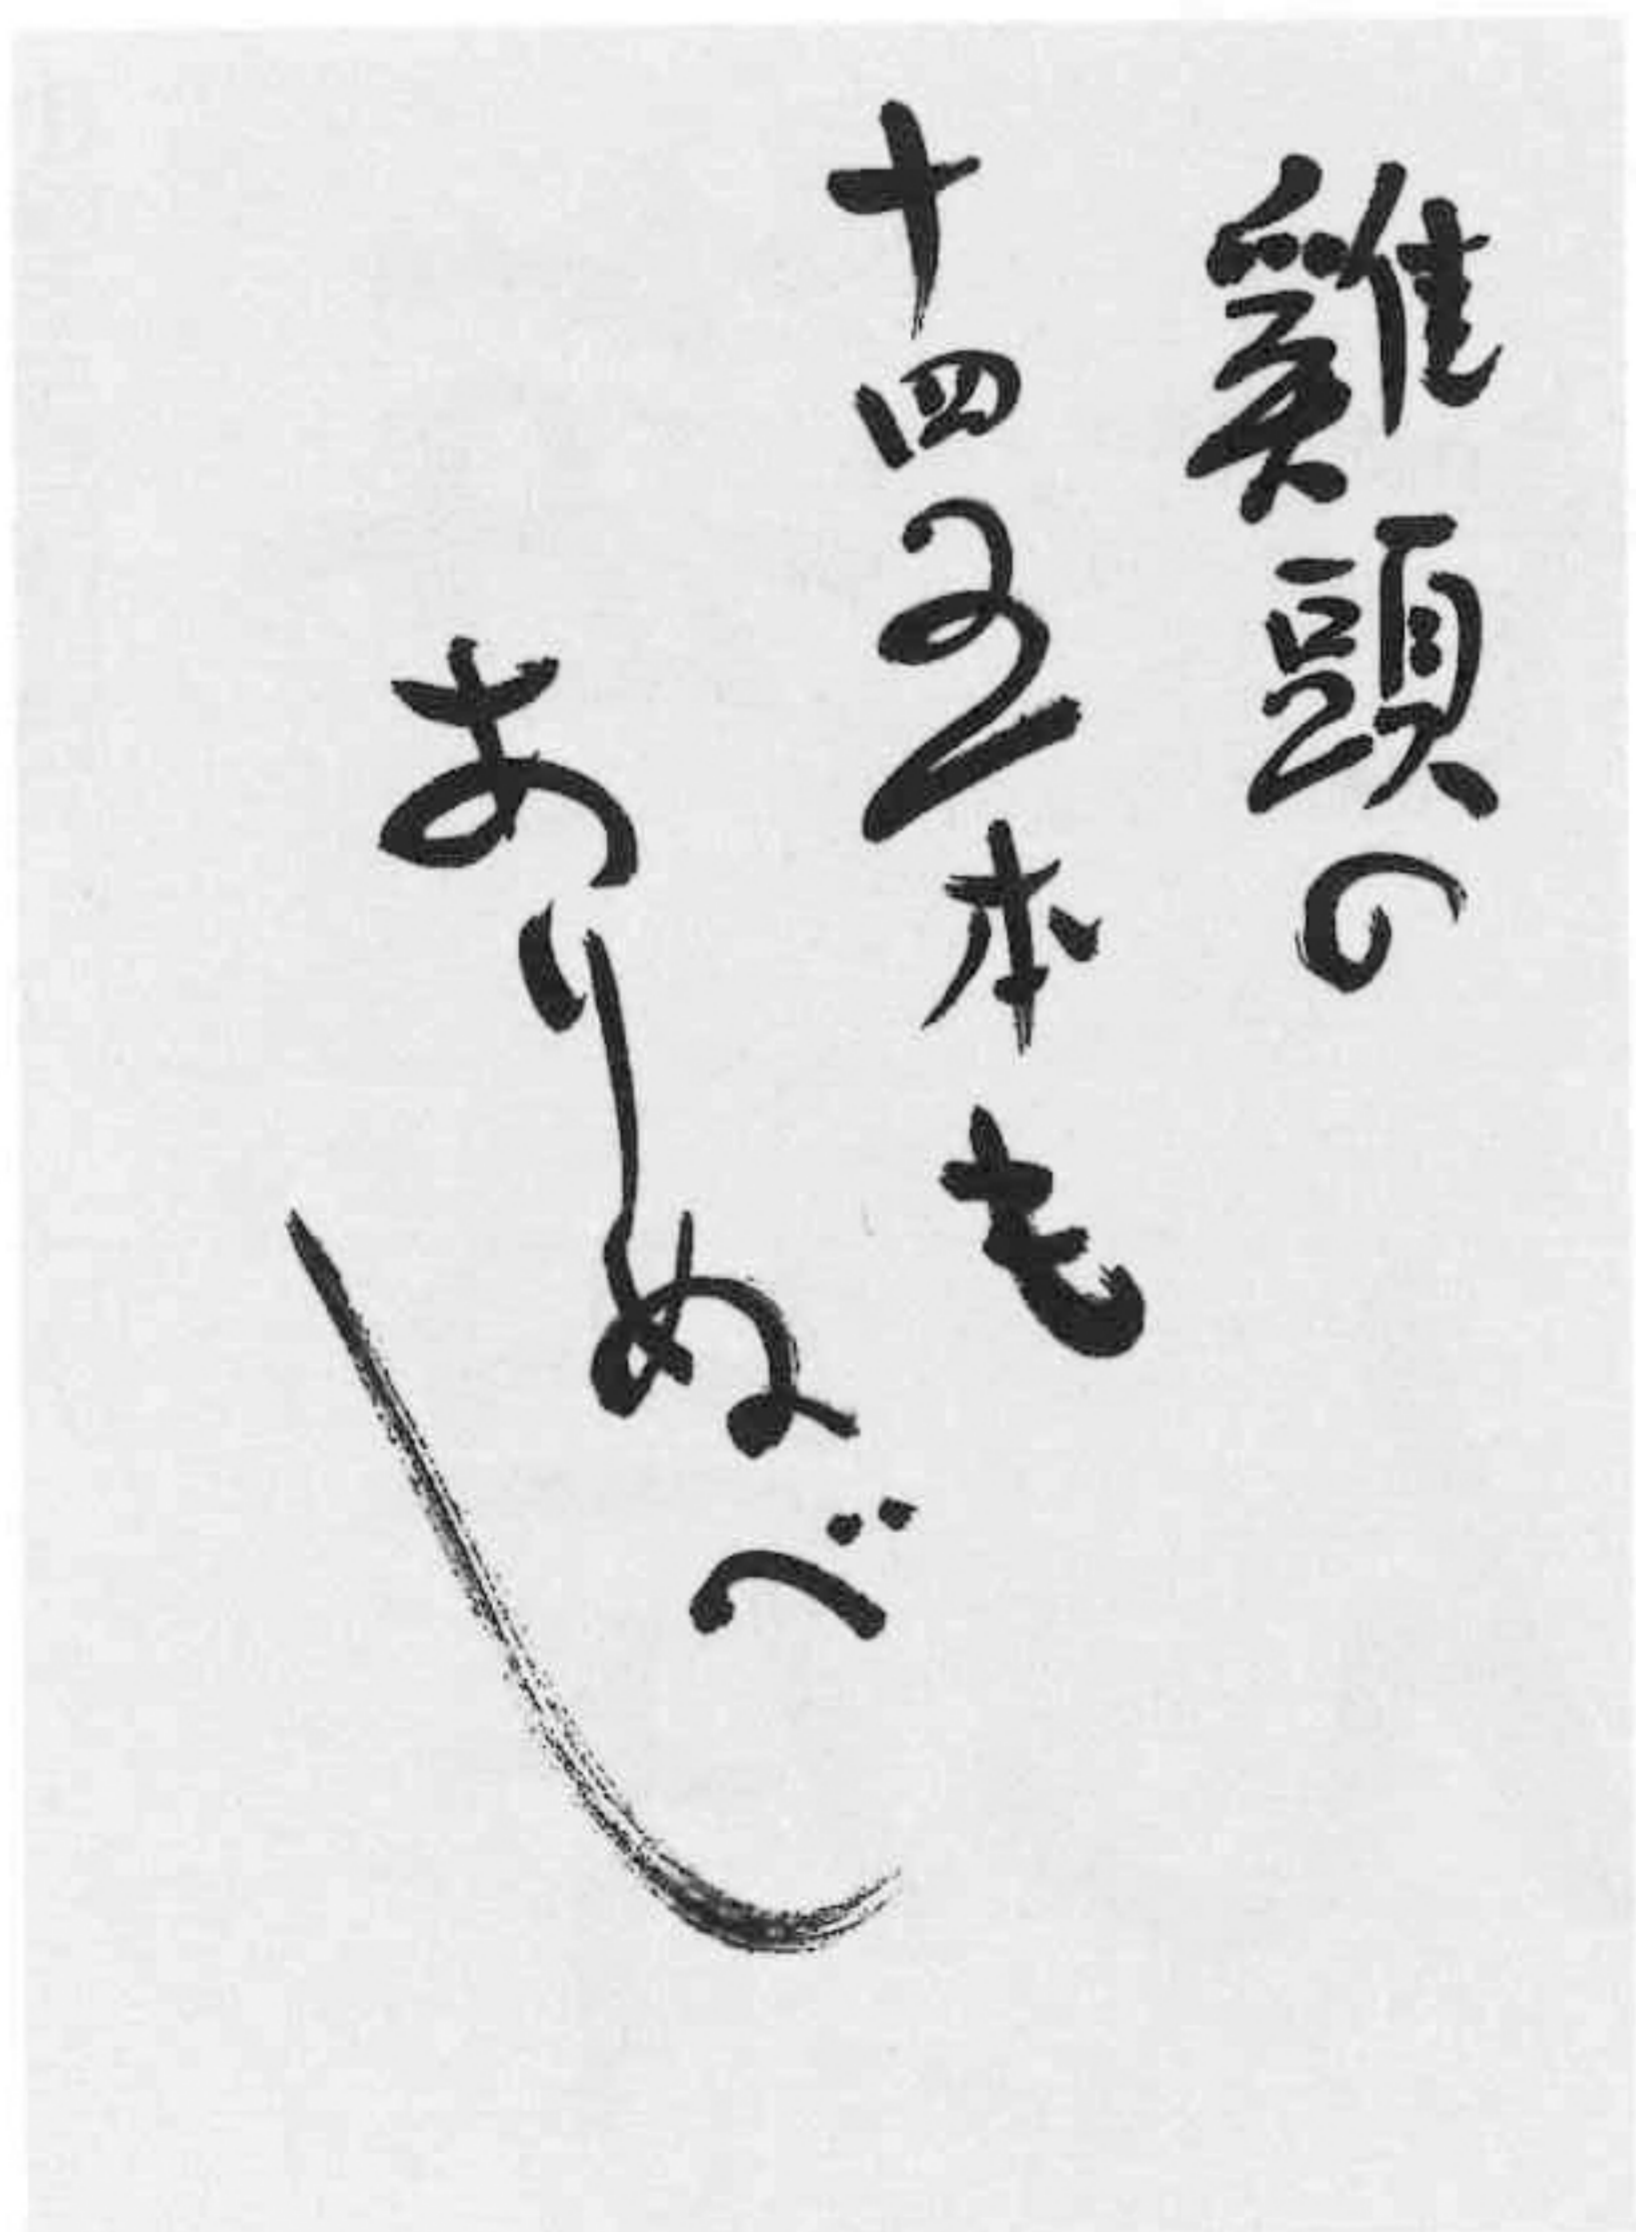 雞頭の
十四五本も
ありぬべし